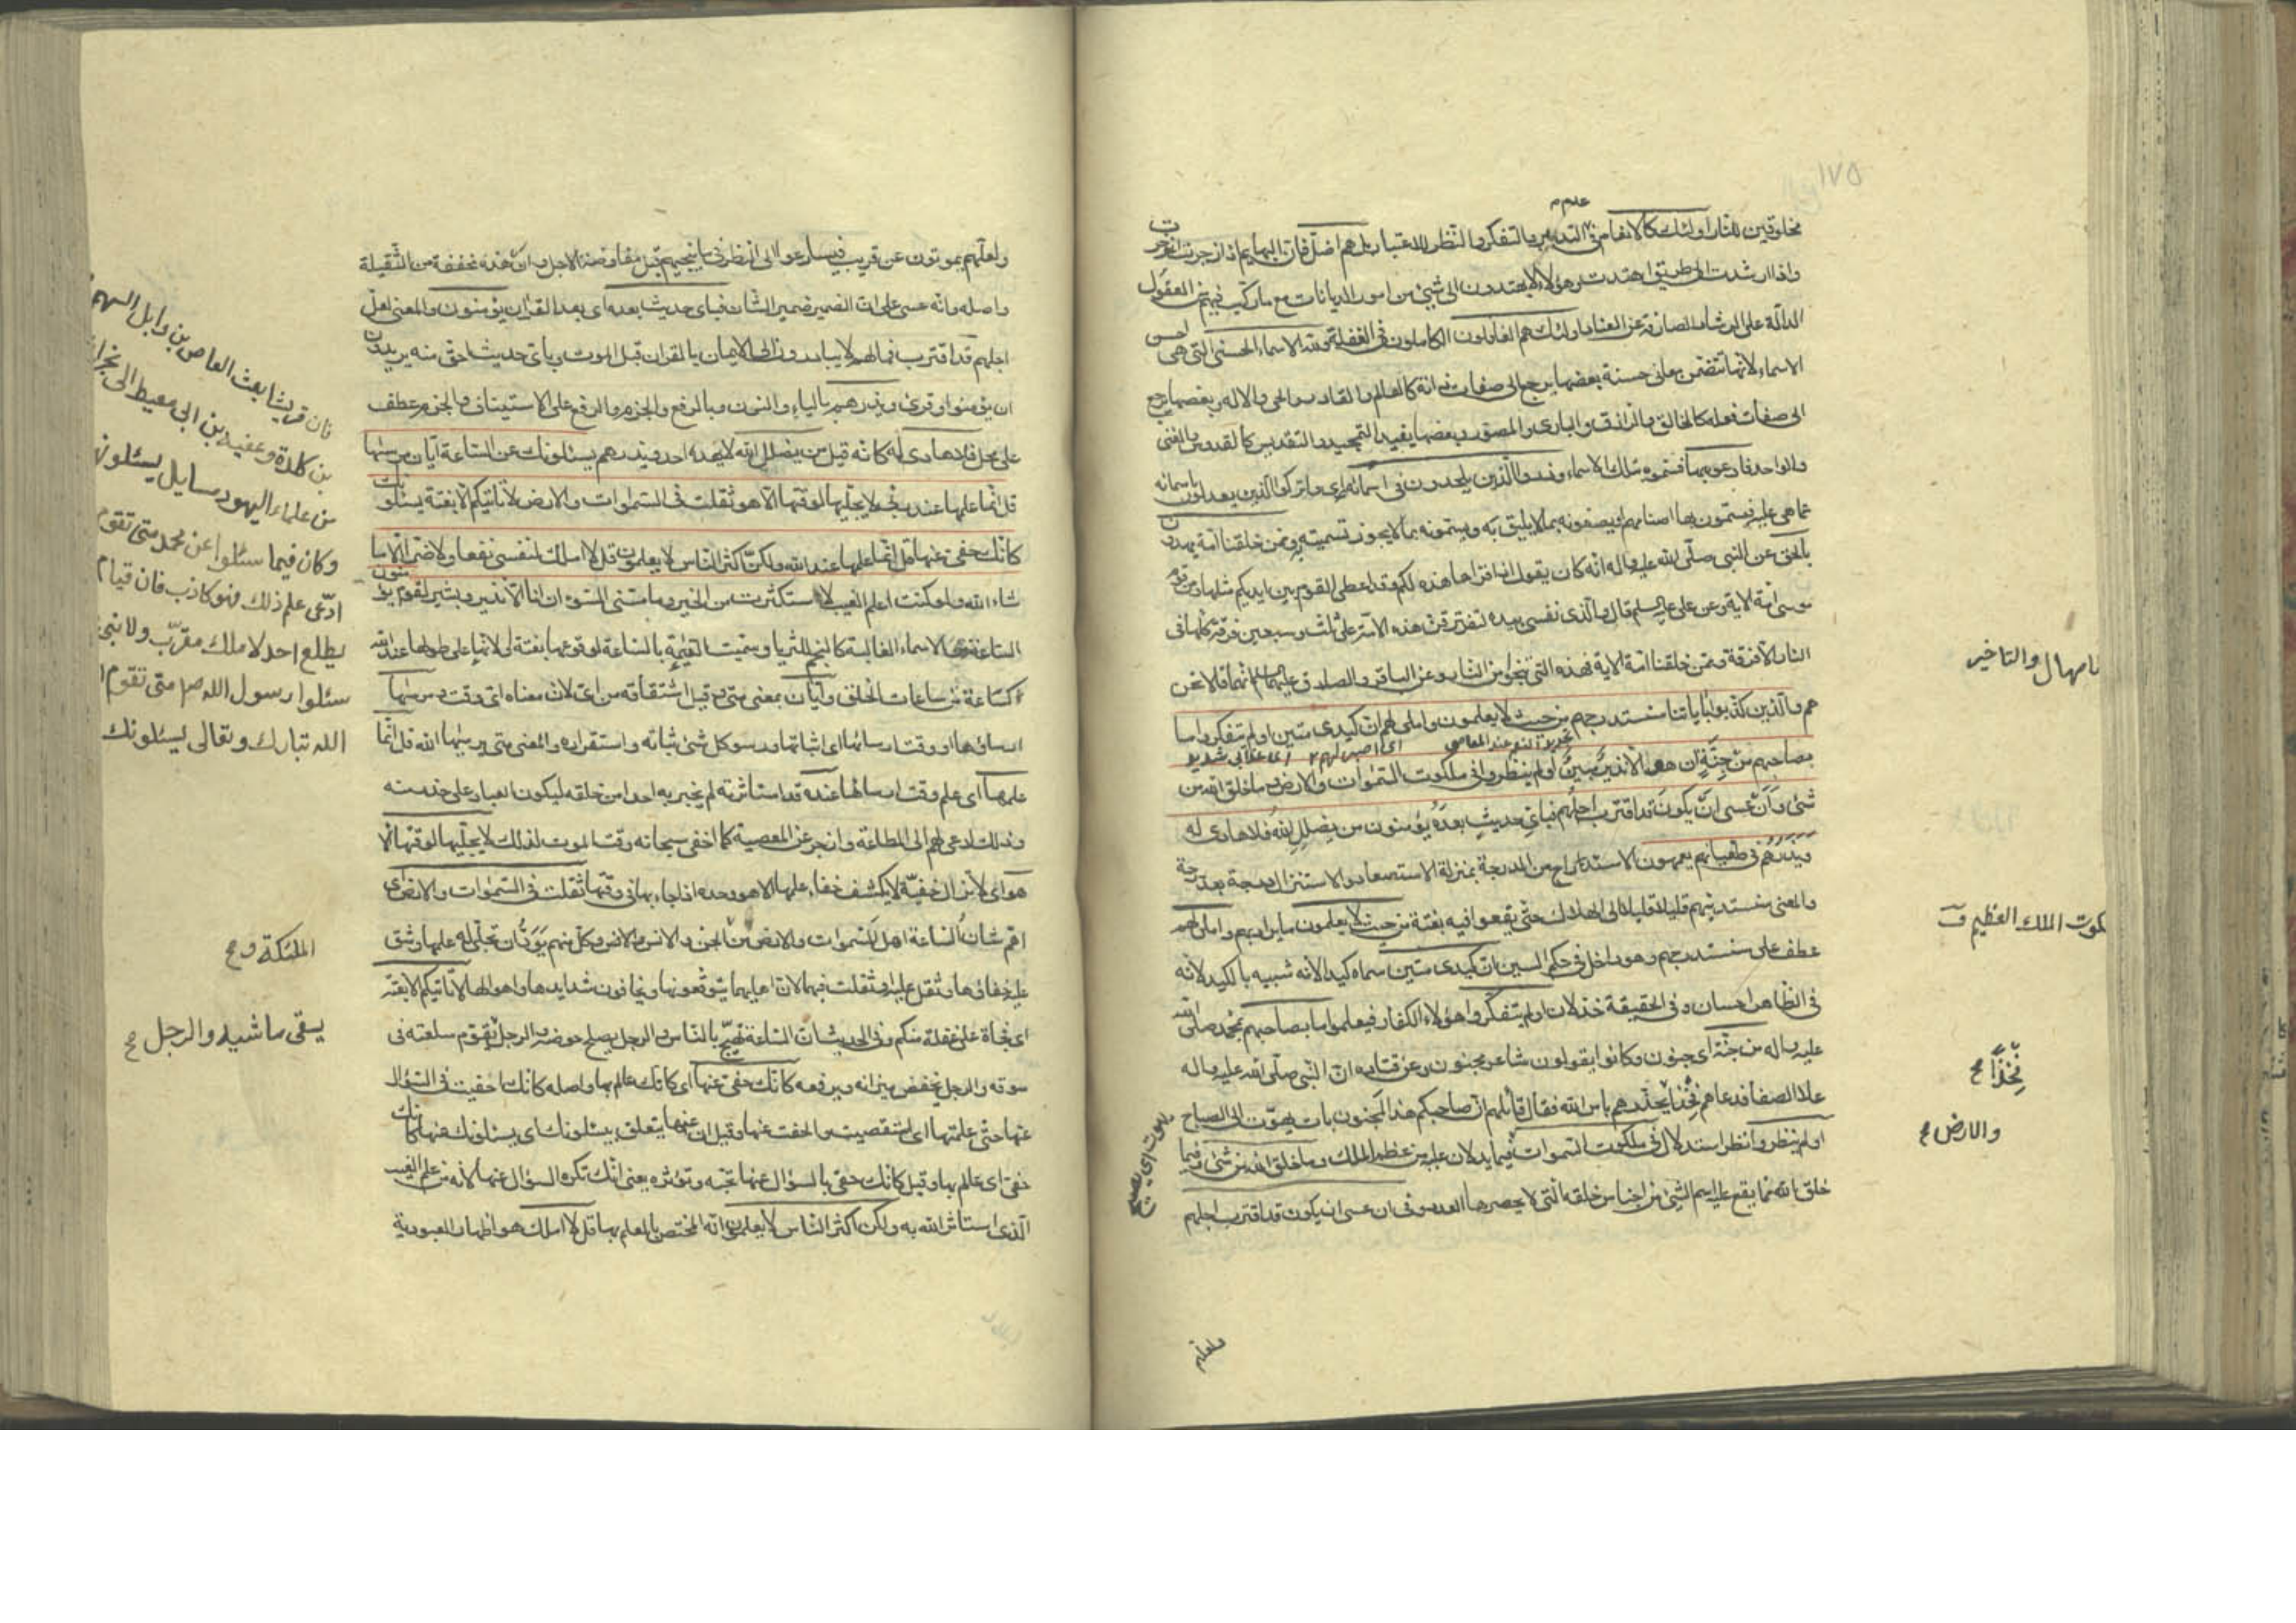 مخلوقين للنار اولئك كالانعام في عدم التدبر والتفكر والنظر للاعتبار بل هم اضل فان البهايم اذا زجرت انزجرت
واذا ارشدت الى طريق اهتدت وهؤلاء لا يهتدون الى شيئ من امور الديانات مع ما ركب فيهم من العقول
الدالة على الرشاد الصارفة عن العناد اولئك هم الغافلون الكاملون في الغفلة ولله الاسماء الحسنى التي هي احسن
الاسماء لانها تتضمن معاني حسنة بعضها يرجع الى صفات ذاته كالعالم والقادر والحي والاله وبعضها يرجع
الى صفات فعله كالخالق والرازق والبارى والمصور وبعضها يفيد التمجيد والتقديس كالقدوس والغني
والواحد فادعوه بها فسموه بتلك الاسماء وذروا الذين يلحدون في اسمائه اي واتركوا الذين يعدلون باسمائه
عما هي عليه فيسمون بها اصنامهم او يصفونه بما لا يليق به ويسمونه بما لا يجوز تسميته به وممن خلقنا امة يهدون
بالحق عن النبي صلى الله عليه واله انه كان يقول اذا قراها هذه لكم وقد اعطى القوم بين ايديكم مثلها ومن قوم
موسى امة الاية وعن علي عليه السلم قال والذي نفسي بيده لتفترقن هذه الامة على ثلث وسبعين فرقة كلها في
النار الا فرقة وممن خلقنا امة الاية فهذه التي تنجوا من النار وعن الباقر والصادق عليهما السلم انهما قالا نحن
هم والذين كذبوا باياتنا سنستدرجهم من حيث لا يعلمون واملى لهم ان كيدى متين اولم يتفكروا ما
بصاحبهم من جنة ان هو الا نذير مبين اولم ينظروا في ملكوت السموات والارض وما خلق الله من
شئ وان عسى ان يكون قد اقترب اجلهم فباي حديث بعده يؤمنون من يضلل الله فلا هادى له
ويذرهم في طغيانهم يعمهون الاستدراج من الدرجة بمنزلة الاستصعاد والاستنزال درجة بعد درجة
والمعنى سنستدنيهم قليلا قليلا الى الهلاك حتى يقعوا فيه بغتة من حيث لا يعلمون ما يراد بهم واملى لهم
عطف على سنستدرجهم وهو داخل في حكم السين ان كيدى متين سماه كيدا لانه شبيه بالكيد لانه
في الظاهر احسان وفي الحقيقة خذلان اولم يتفكروا هؤلاء الكفار فيعلموا ما بصاحبهم بمحمد صلى الله
عليه واله من جنة اى جنون وكانوا يقولون شاعر مجنون وعن قتادة ان النبي صلى الله عليه واله
علا الصفا فدعاهم فخذا فخذا يحذرهم باس الله فقال قائلهم ان صاحبكم هذا لمجنون بات يصوت الى الصباح
اولم ينظروا نظر استدلال في ملكوت السموات فيما يدلان عليه من عظم الملك وما خلق الله من شئ وفيما
خلق الله مما يقع عليه اسم الشئ من اجناس خلقه التي لا يحصرها العدد وفي ان عسى ان يكون قد اقترب اجلهم
ولعلهم
والتاخير
الملك العظيم
فخذا
والارض
ولعلهم يموتون عن قريب فيسارعوا الى النظر فيما ينجيهم قبل مفاوضة الاجل وان هذه مخففة من الثقيلة
واصله وانه عسى على ان الضمير ضمير الشان فباى حديث بعده اى بعد القران يؤمنون والمعنى لعل
اجلهم قد اقترب فما لهم لا يبادرون الى الايمان بالقران قبل الموت وباى حديث احق منه يريدون
ان يؤمنوا وقرئ ويذرهم بالياء والنون وبالرفع والجزم والرفع على الاستيناف والجزم عطف
على محل فلا هادى له كانه قيل من يضلل الله لا يهده احد ويذرهم يسئلونك عن الساعة ايان مرسيها
قل انما علمها عند ربى لا يجليها لوقتها الا هو ثقلت فى السموات والارض لا تاتيكم الا بغتة يسئلونك
كانك حفى عنها قل انما علمها عند الله ولكن اكثر الناس لا يعلمون قل لا املك لنفسى نفعا ولا ضرا الا ما
شاء الله ولو كنت اعلم الغيب لاستكثرت من الخير وما مسنى السوء ان انا الا نذير وبشير لقوم يؤمنون
الساعة من الاسماء الغالبة كالنجم للثريا وسميت القيمة بالساعة لوقوعها بغتة او لانها على طولها عند الله
كساعة من ساعات الخلق وايان بمعنى متى وقيل اشتقاقه من اى لان معناه اى وقت مرسيها
ارساؤها او وقت ارسائها اى اثباتها ورسو كل شئ ثباته واستقراره والمعنى متى يرسيها الله قل انما
علمها اى علم وقت ارسائها عنده قد استاثر به لم يخبر به احدا من خلقه ليكون العباد على حذر منه
وذلك ادعى لهم الى الطاعة وازجر عن المعصية كما اخفى سبحانه وقت الموت لذلك لا يجليها لوقتها الا
هو اى لا تزال خفية لا يكشف خفاء علمها الا هو وحده اذا جاء بها فى وقتها ثقلت فى السموات والارض اى
اهم شان الساعة اهل السموات والارض من الجن والانس وكل منهم يود ان تجلى له علمها وشق
عليه خفاؤها وثقل عليه او ثقلت فيها لان اهليهما يتوقعونها ويخافون شدايدها واهوالها لا تاتيكم الا بغتة
اى فجاة على غفلة منكم وفى الحديث ان الساعة تهيج بالناس والرجل يصلح حوضه والرجل يقوم سلعته فى
سوقه والرجل يخفض ميزانه ويرفعه كانك حفى عنها اى كانك عالم بها واصله كانك احفيت فى السؤال
عنها حتى علمتها اى استقصيت والحفت عنها وقيل ان عنها يتعلق بيسئلونك اى يسئلونك عنها كانك
حفى اى عالم بها وقيل كانك حفى بالسؤال عنها تحبه وتؤثره يعنى انك تكره السؤال عنها لانه من علم الغيب
الذى استاثر الله به ولكن اكثر الناس لا يعلمون انه المختص بالعلم بها قل لا املك هو اظهار للعبودية
فان قريشا بعث العاص بن وايل السهمى
بن كلدة وعقبة بن ابى معيط الى نجران
من علماء اليهود مسايل يسئلون
وكان فيما سئلوا عن محمد متى تقوم
ادعى علم ذلك فهو كاذب فان قيام
يطلع احد لا ملك مقرب ولا نبى
سئلوا رسول الله ص متى تقوم
الله تبارك وتعالى يسئلونك
الملئكة و
يسقى ماشيه والرجل